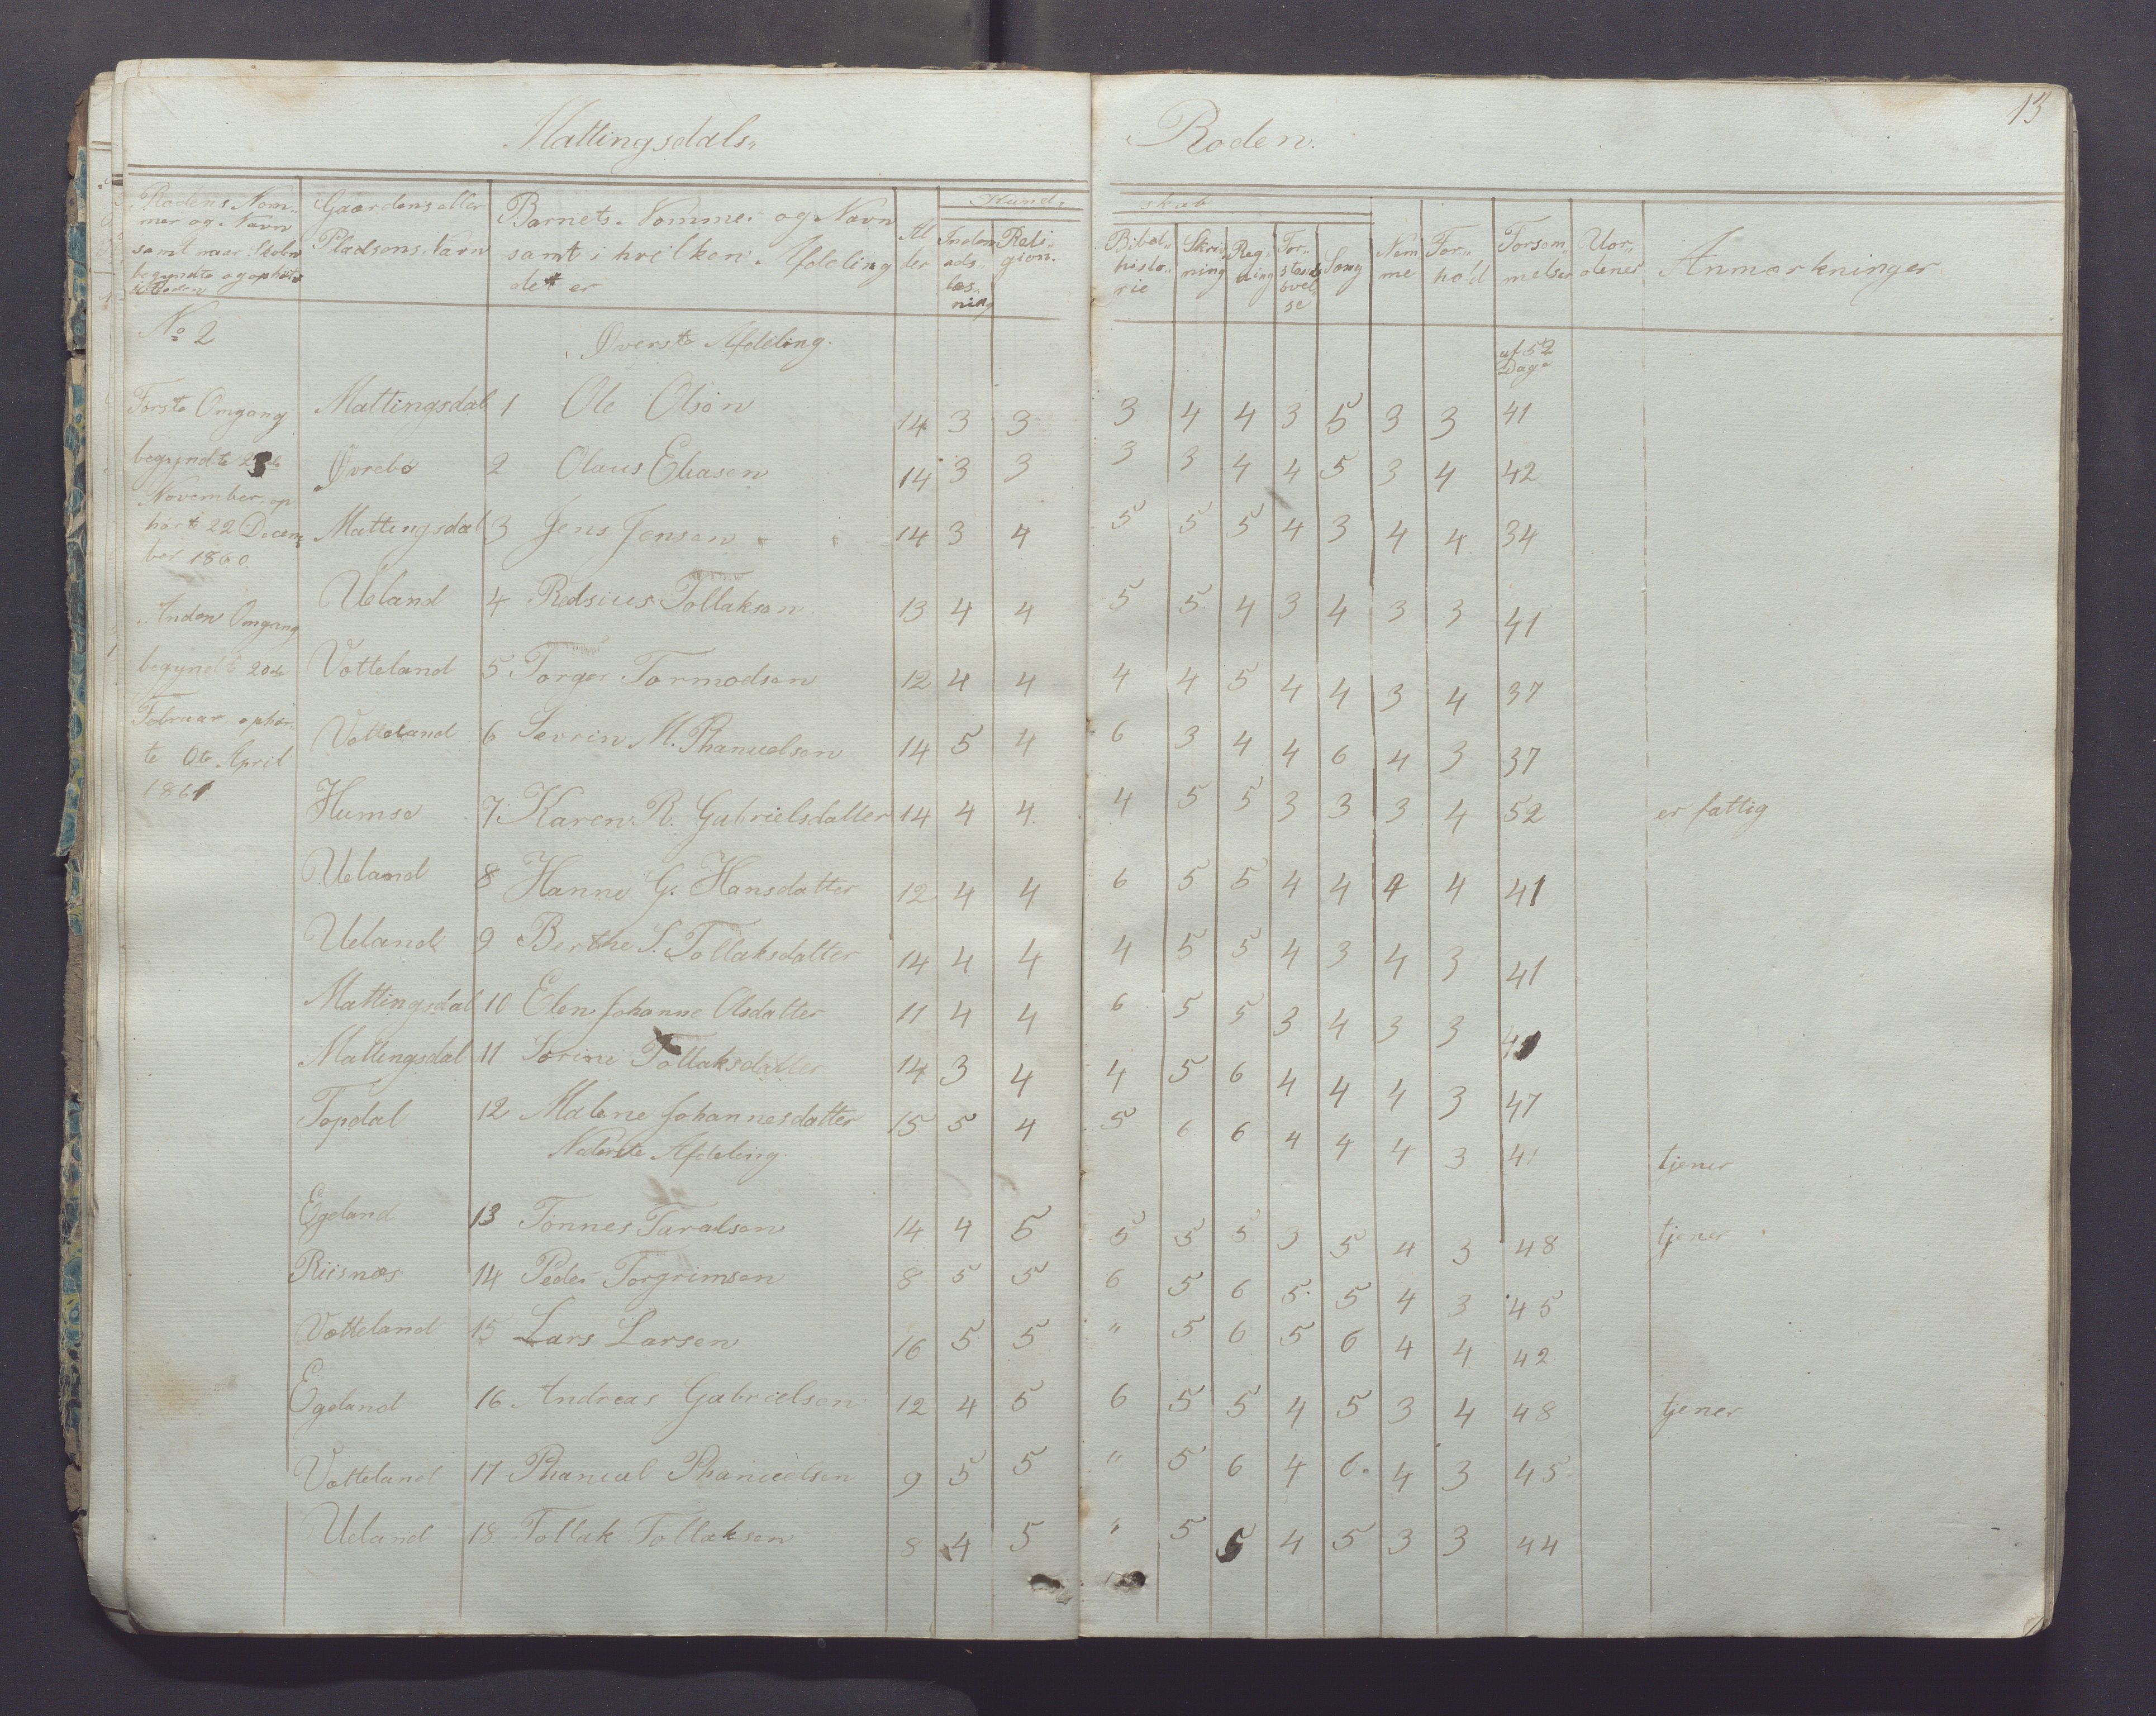 Mattingsdals„ Roden.
13
Rodens Nom„ mer og Navn samt naar Skolen begyndte og ophørte i Roden | Gaardens eller Pladsens Navn | Barnets Nommer og Navn samt i hvilken Afdeling det er | Al der | Kund„ skab | Inden ads læs ning | Reli„ gion. | Bibel„ histo„ rie | Skriv„ ning | Reg„ ning | For„ stands øvel se | Sang | Nem me | For„ hold | Forsøm„ melser | Uor„ dener | Anmærkninger
No 2 | Øverste Afdeling. | af 52 Dage
Første Omgang | Mattingsdal | 1 Ole Olsøn | 14 | 3 | 3 | 3 | 4 | 4 | 3 | 5 | 3 | 3 | 41
begyndte | Øvrebø | 2 Olaus Eliasen | 14 | 3 | 3 | 3 | 3 | 4 | 4 | 5 | 3 | 4 | 42
November, op
hørte 22 Decem„ | Mattingsdal | 3 Jens Jensen | 14 | 3 | 4 | 5 | 5 | 5 | 4 | 3 | 4 | 4 | 34
ber 1860.
Anden Omgang | Ueland | 4 Redsius Tollaksen | 13 | 4 | 4 | 5 | 5 | 4 | 3 | 4 | 3 | 3 | 41
begyndte 20de | Votteland | 5 Torger Tormodsen | 12 | 4 | 4 | 4 | 4 | 5 | 4 | 4 | 3 | 4 | 37
Februar, ophør„ | Votteland | 6 Sevrin M. Phanuelson | 14 | 5 | 4 | 6 | 3 | 4 | 4 | 6 | 4 | 3 | 37
te 6te April
1861 | Humsø | 7. Karen R. Gabrielsdatter | 14 | 4 | 4 | 4 | 5 | 5 | 3 | 3 | 3 | 4 | 52 | er fattig
Ueland | 8 Hanne G. Hansdatter | 12 | 4 | 4 | 6 | 5 | 5 | 4 | 4 | 4 | 4 | 41
Ueland | 9 Berthe S. Tollaksdatter | 14 | 4 | 4 | 4 | 5 | 5 | 4 | 3 | 4 | 3 | 41
Mattingsdal | 10 Elen Johanne Olsdatter | 11 | 4 | 4 | 6 | 5 | 5 | 3 | 4 | 3 | 3 | 41
Mattingsdal | 11 Sørine Tollaksdatter | 14 | 3 | 4 | 4 | 5 | 6 | 4 | 4 | 4 | 3 | 47
Topdal | 12 Malene Johannesdatter | 15 | 5 | 4 | 5 | 6 | 6 | 4 | 4 | 4 | 3 | 41 | tjener
Nederste Afdeling.
Egeland | 13 Tønnes Taralsen | 14 | 4 | 5 | 5 | 5 | 5 | 3 | 5 | 4 | 3 | 48 | tjener
Riisnæs | 14 Peder Torgrimsen | 8 | 5 | 5 | 6 | 5 | 6 | 5. | 5 | 4 | 3 | 45
Votteland | 15 Lars Larsen | 16 | 5 | 5 | „ | 5 | 6 | 5 | 6 | 4 | 4 | 42
Egeland | 16 Andreas Gabrielsen | 12 | 4 | 5 | 6 | 5 | 5 | 4 | 5 | 3 | 4 | 48 | tjener
Votteland | 17 Phanuel Phanuelsen | 9 | 5 | 5 | „ | 5 | 6 | 4 | 6. | 4 | 3 | 45
Ueland | 18 Tollak Tollaksen | 8 | 4 | 5 | „ | 5 | 5 | 4 | 5 | 3 | 3 | 44